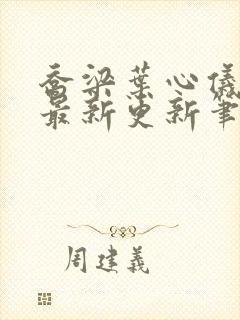 乔梁叶心仪
最新更新筆
周建義